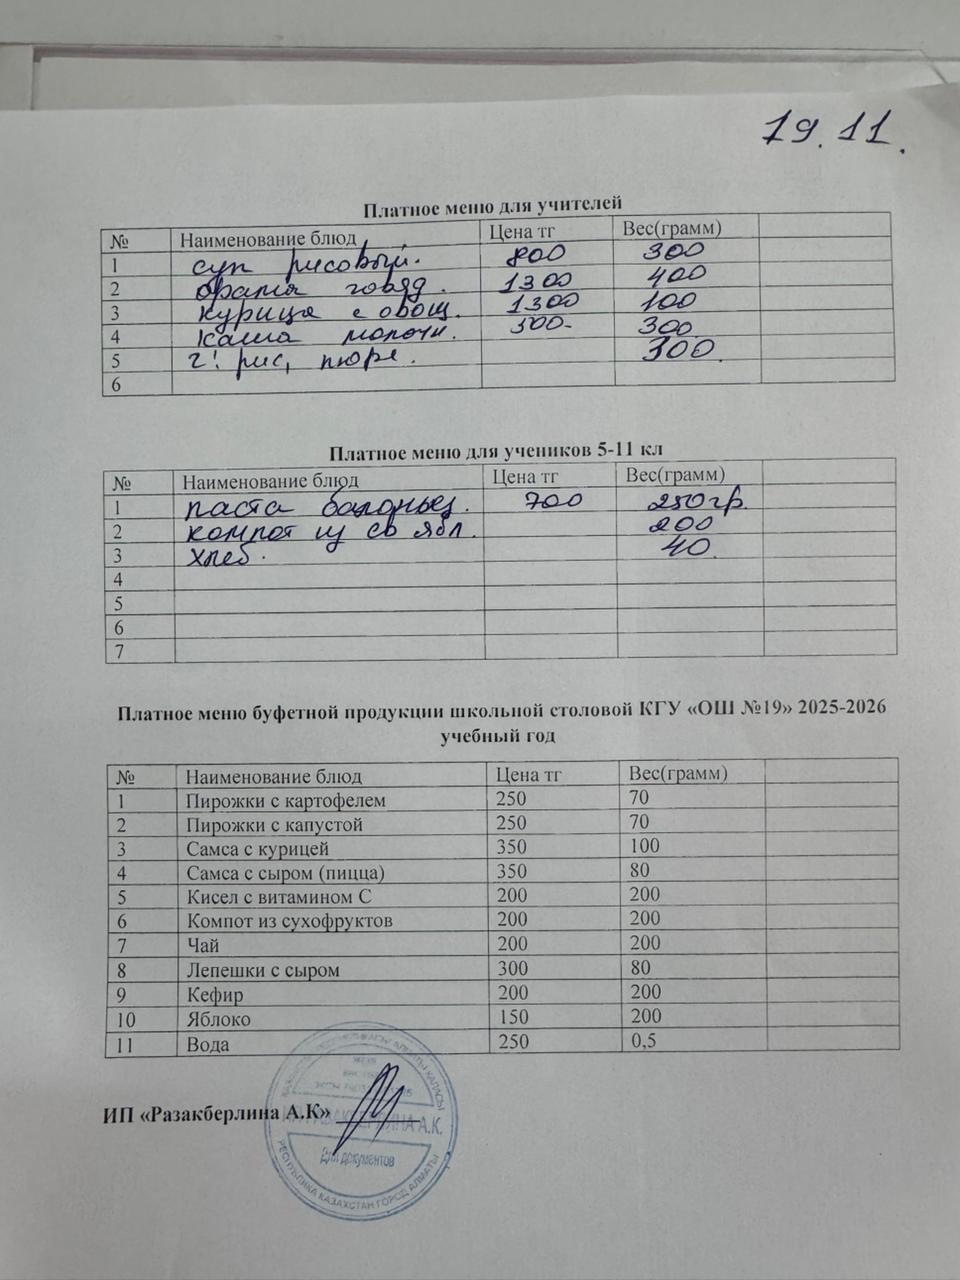 19.11.
Платное меню для учителей
№ Наименование блюд Цена тг Вес(грамм)
1 суп рисовый. 800 300
2 говяд. 1300 400
3 курица с овощ. 1300 100
4 каша молочн. 500- 300
5 г: рис, пюре. 300
6
Платное меню для учеников 5-11 кл
№ Наименование блюд Цена тг Вес(грамм)
1 паста балоньез. 700 250гр.
2 компот из св ябл. 200
3 хлеб. 40.
4
5
6
7
Платное меню буфетной продукции школьной столовой КГУ «ОШ №19» 2025-2026
учебный год
№ Наименование блюд Цена тг Вес(грамм)
1 Пирожки с картофелем 250 70
2 Пирожки с капустой 250 70
3 Самса с курицей 350 100
4 Самса с сыром (пицца) 350 80
5 Кисел с витамином С 200 200
6 Компот из сухофруктов 200 200
7 Чай 200 200
8 Лепешки с сыром 300 80
9 Кефир 200 200
10 Яблоко 150 200
11 Вода 250 0,5
ИП «Разакберлина А.К»
Для документов
РЕСПУБЛИКА КАЗАХСТАН ГОРОД АЛМАТЫ